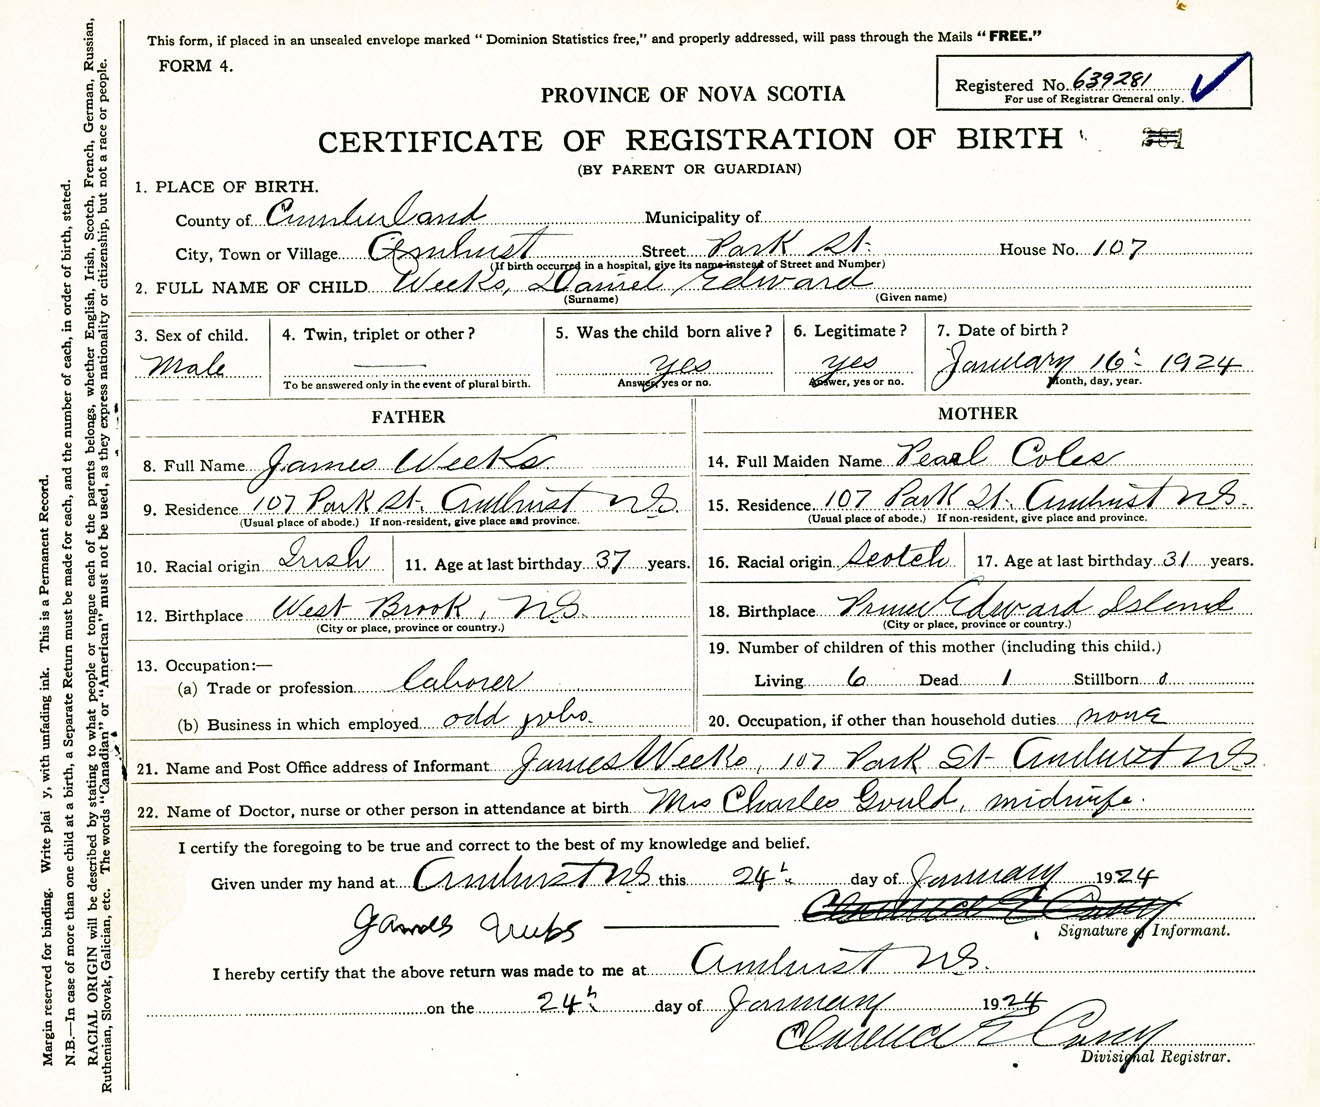 This form, if placed in an unsealed envelope marked "Dominion Statistics free," and properly addressed, will pass through the Mails "FREE."
FORM 4.
Registered No. 639281
For use of Registrar General only.
PROVINCE OF NOVA SCOTIA
CERTIFICATE OF REGISTRATION OF BIRTH
(BY PARENT OR GUARDIAN)
1. PLACE OF BIRTH.
County of Cumberland Municipality of
City, Town or Village Amherst Street Park St. House No. 107
(If birth occurred in a hospital, give its name instead of Street and Number)
2. FULL NAME OF CHILD Weeks, Daniel Edward
(Surname) (Given name)
3. Sex of child. 4. Twin, triplet or other? 5. Was the child born alive? 6. Legitimate? 7. Date of birth?
Male — yes yes January 16 1924
To be answered only in the event of plural birth. Answer, yes or no. Answer, yes or no. Month, day, year.
FATHER
8. Full Name James Weeks
9. Residence 107 Park St. Amherst N.S.
(Usual place of abode.) If non-resident, give place and province.
10. Racial origin Irish 11. Age at last birthday 37 years.
12. Birthplace West Brook, N.S.
(City or place, province or country.)
13. Occupation:—
(a) Trade or profession laborer
(b) Business in which employed odd jobs.
MOTHER
14. Full Maiden Name Pearl Coles
15. Residence 107 Park St. Amherst N.S.
(Usual place of abode.) If non-resident, give place and province.
16. Racial origin Scotch 17. Age at last birthday 31 years.
18. Birthplace Prince Edward Island
(City or place, province or country.)
19. Number of children of this mother (including this child.)
Living 6 Dead 1 Stillborn 0
20. Occupation, if other than household duties none
21. Name and Post Office address of Informant James Weeks, 107 Park St Amherst N.S.
22. Name of Doctor, nurse or other person in attendance at birth Mrs Charles Gould, midwife.
I certify the foregoing to be true and correct to the best of my knowledge and belief.
Given under my hand at Amherst N.S. this 24th day of January 1924
James Weeks
Signature of Informant.
I hereby certify that the above return was made to me at Amherst N.S.
on the 24th day of January 1924
Clarence E Casey
Divisional Registrar.
Margin reserved for binding. Write plai y, with unfading ink. This is a Permanent Record.
N.B.—In case of more than one child at a birth, a Separate Return must be made for each, and the number of each, in order of birth, stated.
RACIAL ORIGIN will be described by stating to what people or tongue each of the parents belongs, whether English, Irish, Scotch, French, German, Russian,
Ruthenian, Slovak, Galician, etc. The words "Canadian" or "American" must not be used, as they express nationality or citizenship, but not a race or people.